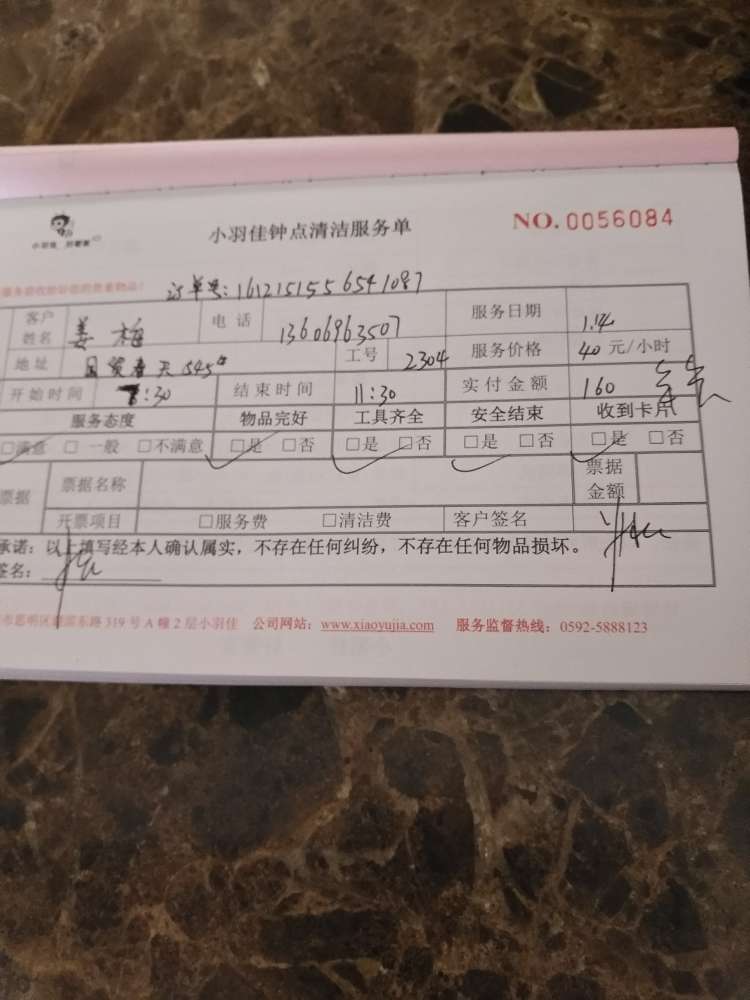 小羽佳钟点清洁服务单 NO.0056084
小羽佳 好管家
订单号:1612151556541087
客户姓名 姜梅 电话 13606963507 服务日期 1.14
地址 国贸春天545 工号 2304 服务价格 40元/小时
开始时间 7:30 结束时间 11:30 实付金额 160
服务态度 物品完好 工具齐全 安全结束 收到卡片
□满意 □一般 □不满意 □是 □否 □是 □否 □是 □否 □是 □否
票据 票据名称 票据金额
开票项目 □服务费 □清洁费 客户签名
承诺：以上填写经本人确认属实，不存在任何纠纷，不存在任何物品损坏。
签名：
市思明区 东路319号A幢2层小羽佳 公司网站：www.xiaoyujia.com 服务监督热线：0592-5888123